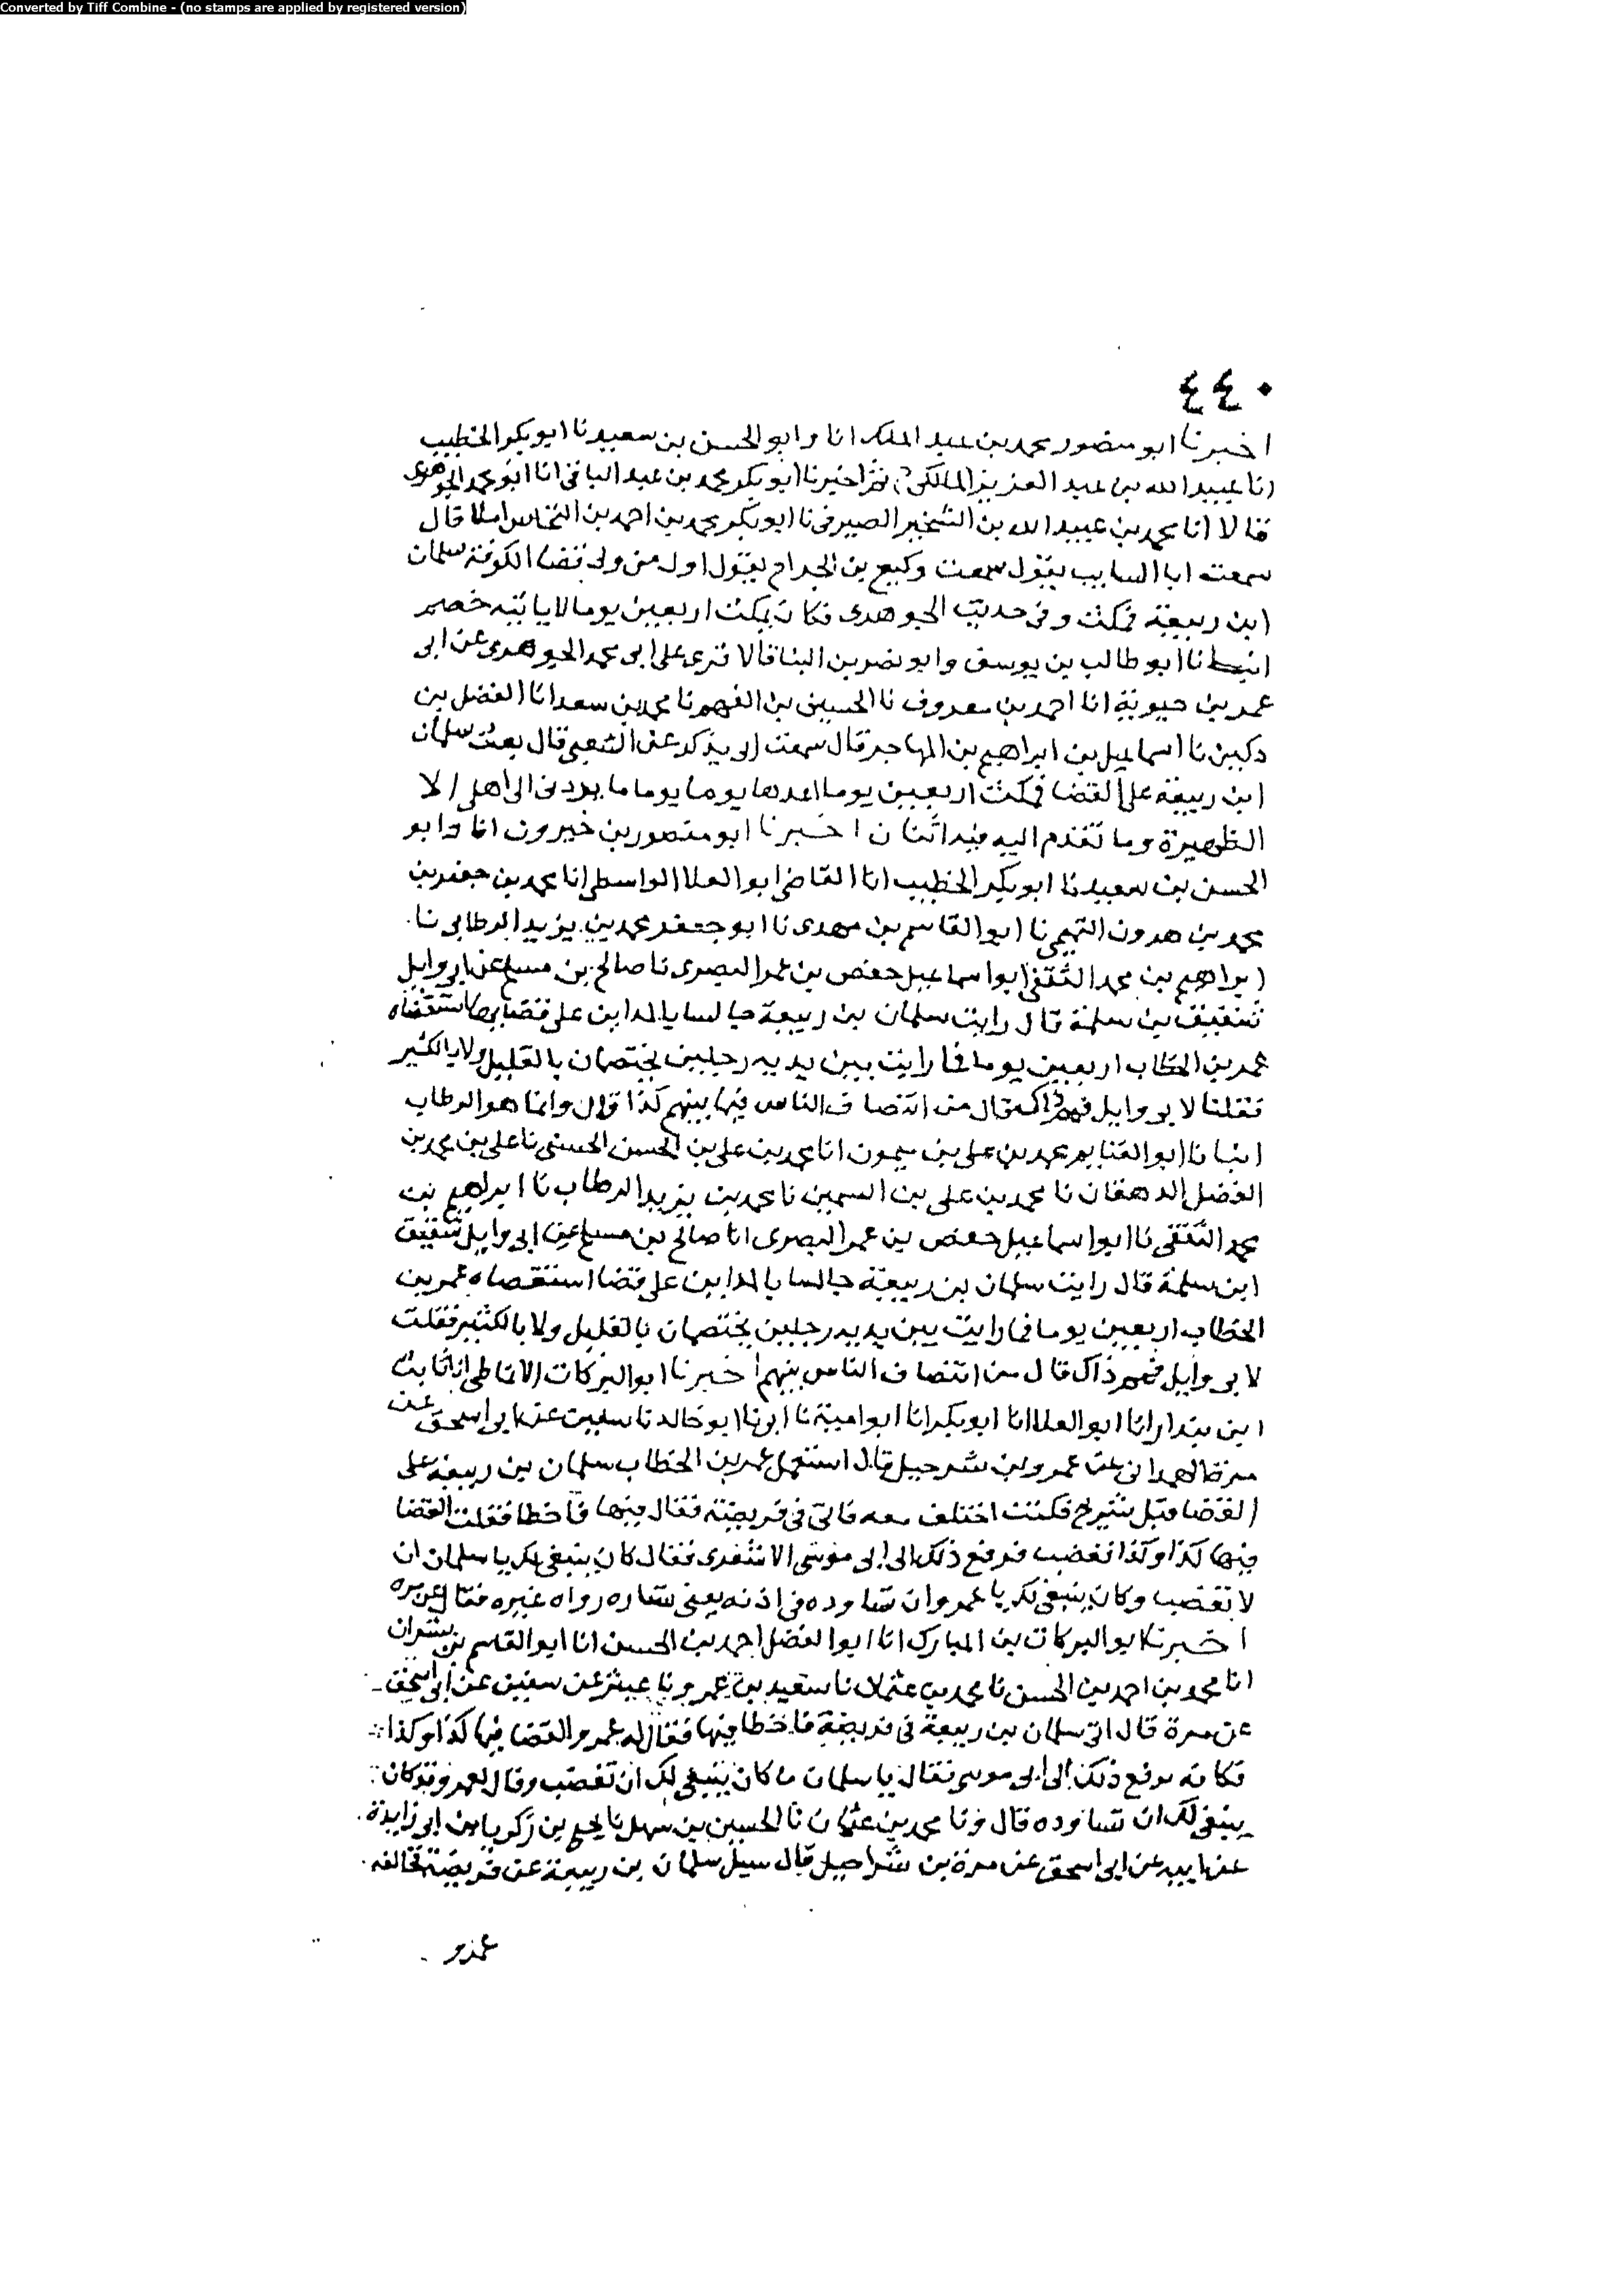 Converted by Tiff Combine - (no stamps are applied by registered version)
٤٤٠
اخبرنا ابو منصور محمد بن عبد الملك انا وابو الحسن بن سعيد نا ابو بكر الخطيب
انا عبيد الله بن عبد العزيز المالكي ثم اخبرنا ابو بكر محمد بن عبد الباقي انا ابو محمد الجوهري
قالا انا محمد بن عبيد الله بن الشخير الصيرفي نا ابو بكر محمد بن احمد بن النخاس املا قال
سمعت ابا السايب يقول سمعت وكيع بن الجراح يقول اول من ولى قضا الكوفة سلمان
ابن ربيعة فمكث وفي حديث الجوهري فكان يمكث اربعين يوما لا ياتيه خصم
ابو طالب بن يوسف وابو نصر بن البنا قالا قرى على ابي محمد الجوهري عن ابي
عمر بن حيوية انا احمد بن معروف نا الحسين بن الفهم نا محمد بن سعد انا الفضل بن
دكين نا اسماعيل بن ابراهيم بن المهاجر قال سمعت ابي يذكر عن الشعبي قال بعث سلمان
ابن ربيعة على القضا فمكث اربعين يوما اعدها يوما يوما ما يردني الى اهلي الا
الظهيرة وما تقدم اليه فيه اثنان اخبرنا ابو منصور بن خيرون انا وابو
الحسن بن سعيد نا ابو بكر الخطيب انا القاضي ابو العلا الواسطي انا محمد بن جعفر بن
محمد بن هرون التميمي نا ابو القاسم بن مهدى نا ابو جعفر محمد بن يزيد الرطابي نا
ابراهيم بن محمد الثقفي ابو اسماعيل حفص بن عمر البصرى نا صالح بن مسلم عن ابي وايل
شقيق بن سلمة قال رايت سلمان بن ربيعة جالسا بالمداين على قضايها استقضاه
عمر بن الخطاب اربعين يوما فما رايت بين يديه رجلين يختصمان بالقليل ولا بالكثير
فقلنا لابي وايل فمم ذاك قال من انتصاف الناس فيما بينهم كذا قال وانما هو الرطاب
انبانا ابو الغنايم محمد بن على بن ميمون انا محمد بن على بن الحسن الحسنى نا على بن محمد بن
الفضل الدهقان نا محمد بن على بن السمين نا محمد بن يزيد الرطاب نا ابراهيم بن
محمد الثقفى نا ابو اسماعيل حفص بن عمر البصرى انا صالح بن مسلم عن ابي وايل شقيق
ابن سلمة قال رايت سلمان بن ربيعة جالسا بالمداين على قضا استقضاه عمر بن
الخطاب اربعين يوما فما رايت بين يديه رجلين يختصمان بالقليل ولا بالكثير فقلت
لابي وايل فمم ذاك قال من انتصاف الناس بينهم اخبرنا ابو البركات الانماطي انا ثابت
ابن بندار انا ابو العلا انا ابو بكر انا ابو امية نا ابي نا ابو خالد نا سفيان عن ابي اسحق عن
مرة الهمداني عن عمرو بن شرحبيل قال استعمل عمر بن الخطاب سلمان بن ربيعة على
القضا قبل شريح فكنت اختلف معه فاتى في فريضة فقال فيها فاخطا فقلت القضا
فيها كذا وكذا فغضب فرفع ذلك الى ابي موسى الاشعرى فقال كان ينبغي لك يا سلمان ان
لا تغضب وكان ينبغى لك يا عمرو ان تشاوره في اذنه يعنى تشاره رواه غيره فقال عن مره
اخبرنا ابو البركات بن المبارك انا ابو الفضل احمد بن الحسن انا ابو القاسم بن بشران
انا محمد بن احمد بن الحسن نا محمد بن عثمان نا سعيد بن عمرو نا عبثر عن سفين عن ابي اسحق
عن مرة قال اتى سلمان بن ربيعة في فريضة فاخطا فيها فقال له عمرو القضا فيها كذا وكذا
فكانه رفع ذلك الى ابي موسى فقال يا سلمان ما كان ينبغي لك ان تغضب وقال لعمرو قد كان
ينبغي لك ان تشاوره قال ونا محمد بن عثمان نا الحسين بن سهل نا يحيى بن زكريا بن ابي زايدة
عن ابيه عن ابي اسحق عن مرة بن شراحيل قال سيل سلمان بن ربيعة عن فريضة فخالفه
عمرو